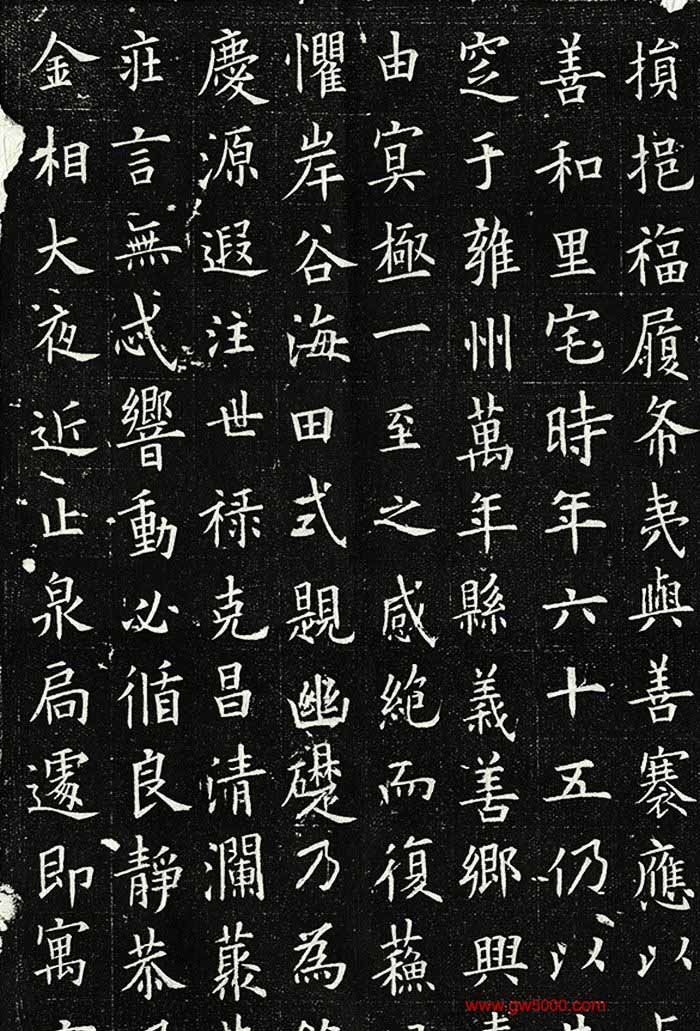 損挹福履希夷與善褰應以
善和里宅時年六十五仍以
窆于雍州萬年縣義善鄉興
由冥極一至之感絶而復蘇
懼岸谷海田式題幽礎乃為
慶源遐注世禄克昌清瀾藂
莊言無忒響動必循良靜恭
金相大夜近止泉扃遽即寓
www.gw5000.com